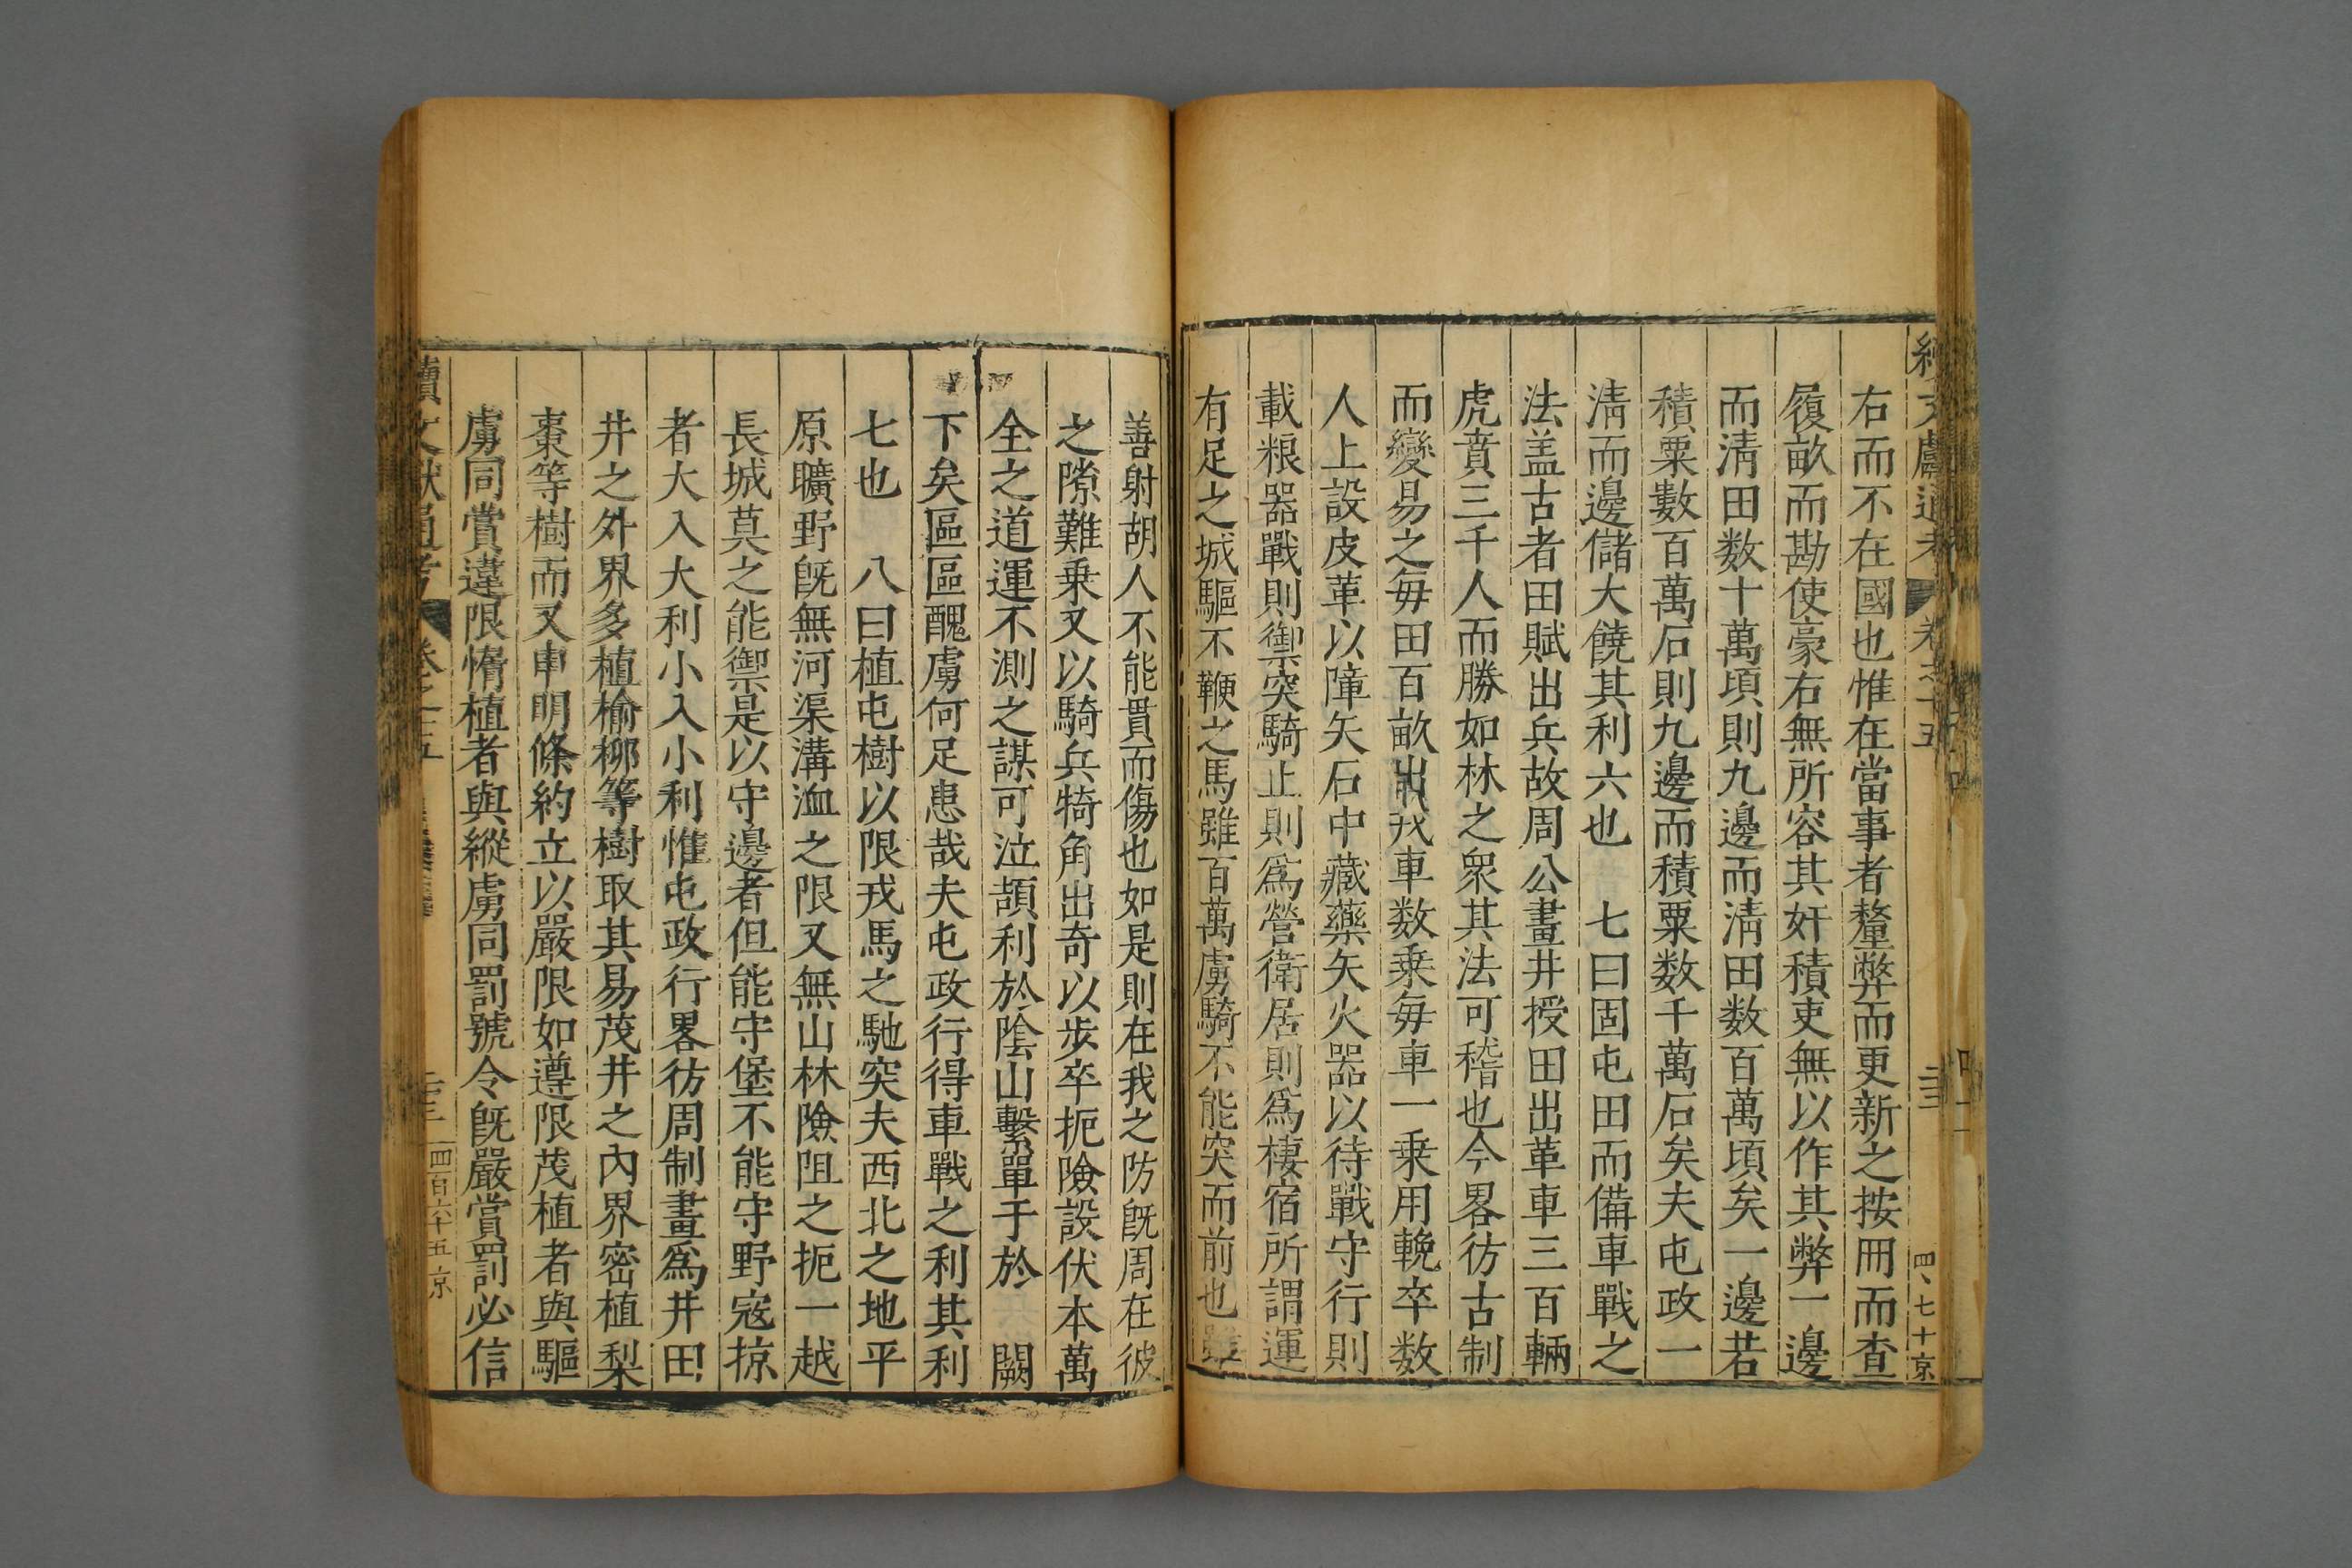 右而不在國也惟在當事者釐弊而更新之按冊而查
履畝而勘使豪右無所容其奸積吏無以作其弊一邊
而淸田数十萬頃則九邊而淸田数百萬頃矣一邊若
積粟數百萬石則九邊而積粟数千萬石矣夫屯政一
淸而邊儲大饒其利六也　七曰固屯田而備車戰之
法盖古者田賦出兵故周公畫井授田出革車三百輛
虎賁三千人而勝如林之衆其法可稽也今畧彷古制
而變易之毎田百畝出戎車数乗毎車一乗用輓卒数
人上設皮革以障矢石中藏藥矢火器以待戰守行則
載粮器戰則禦突騎止則爲營衛居則爲棲宿所謂運
有足之城驅不鞭之馬雖百萬虜騎不能突而前也
善射胡人不能貫而傷也如是則在我之防旣周在彼
之隙難乗又以騎兵犄角出奇以步卒扼險設伏本萬
全之道運不測之謀可泣頡利於陰山繫單于於　闕
下矣區區醜虜何足患哉夫屯政行得車戰之利其利
七也　八曰植屯樹以限戎馬之馳突夫西北之地平
原曠野旣無河渠溝洫之限又無山林險阻之扼一越
長城莫之能禦是以守邊者但能守堡不能守野寇掠
者大入大利小入小利惟屯政行畧彷周制畫爲井田
井之外界多植榆柳等樹取其易茂井之內界密植梨
棗等樹而又申明條約立以嚴限如遵限茂植者與驅
虜同賞違限惰植者與縱虜同罰號令旣嚴賞罰必信
續文獻通考　卷之十五　四百六十五　京